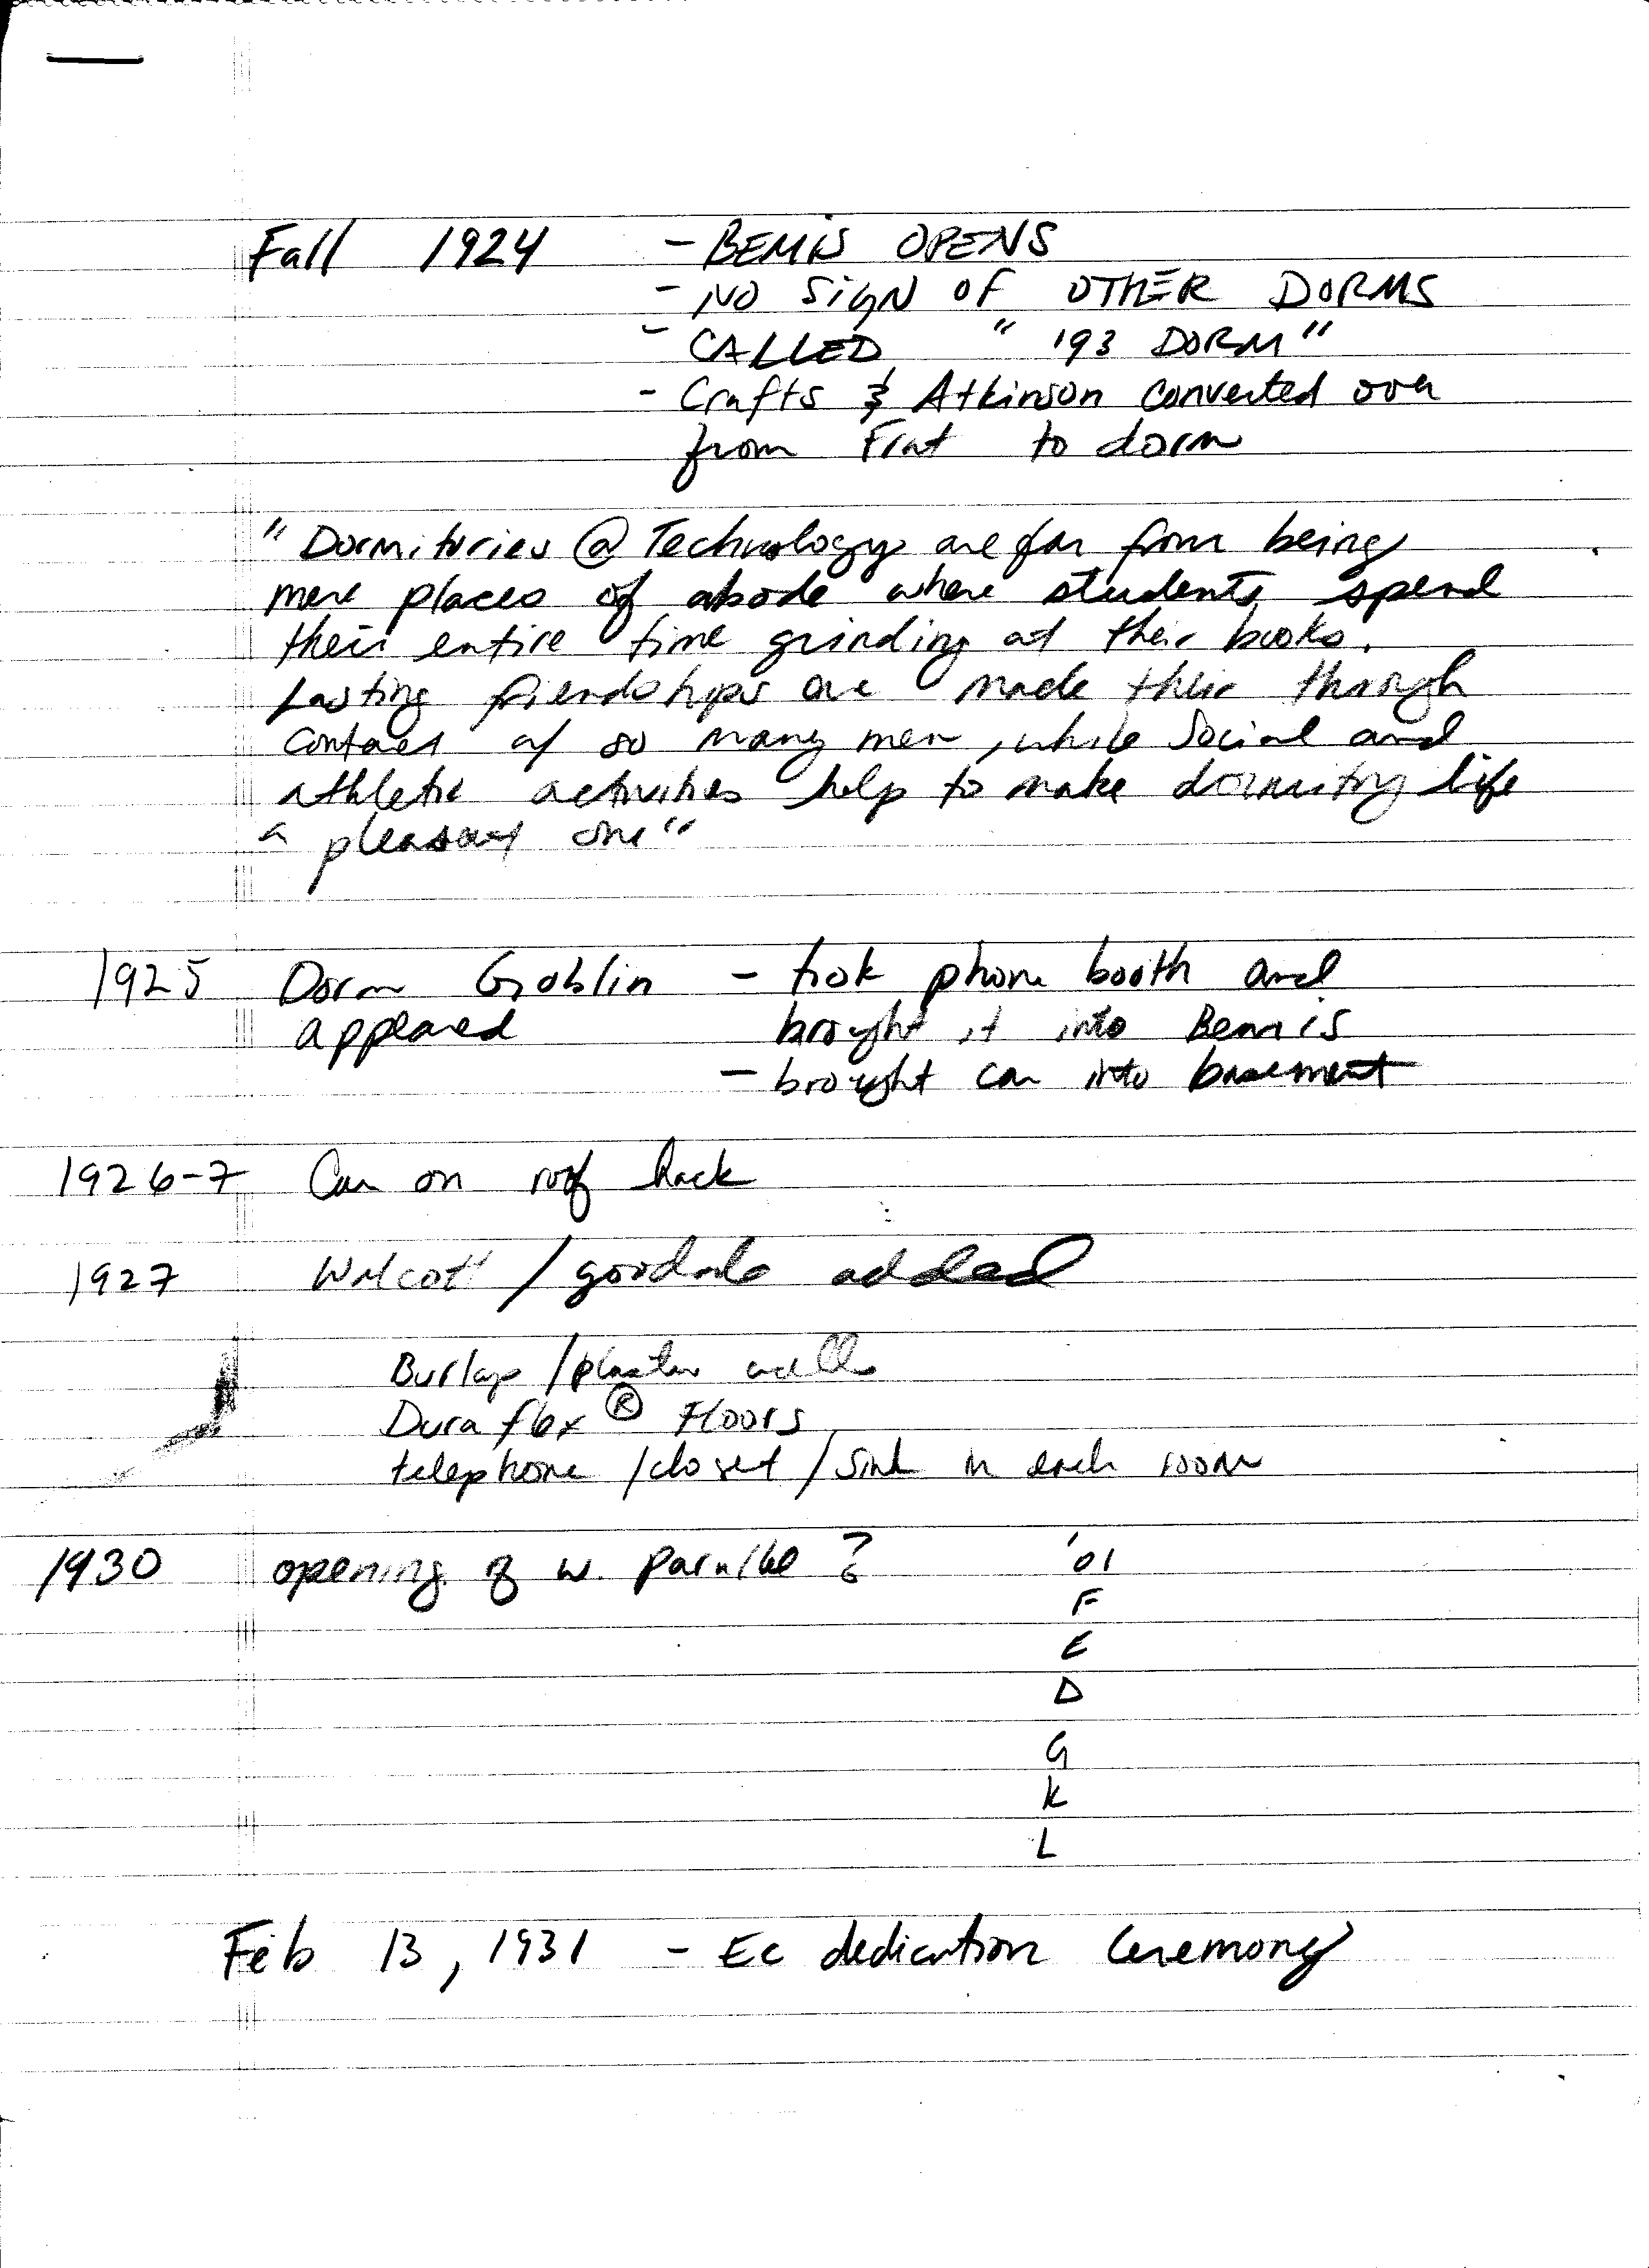 Fall 1924 - BEMIS OPENS
- NO SIGN OF OTHER DORMS
- CALLED "193 DORM"
- Crafts & Atkinson converted over
from Frat to dorm
"Dormitories @ Technology are far from being
mere places of abode where students spend
their entire time grinding at their books.
Lasting friendships are made their through
contact w/ so many men, while social and
athletic activities help to make dormitory life
a pleasant one"
1925 Dorm Goblin - took phone booth and
appeared brought it into Bemis
- brought car into basement
1926-7 Car on roof hack
1927 Walcott / goodale added
Burlap / plaster walls
Dura flex ® Floors
telephone / closet / sink in each room
1930 opening of w. Parallel ? '01
F
E
D
G
K
L
Feb 13, 1931 - EC dedication Ceremony